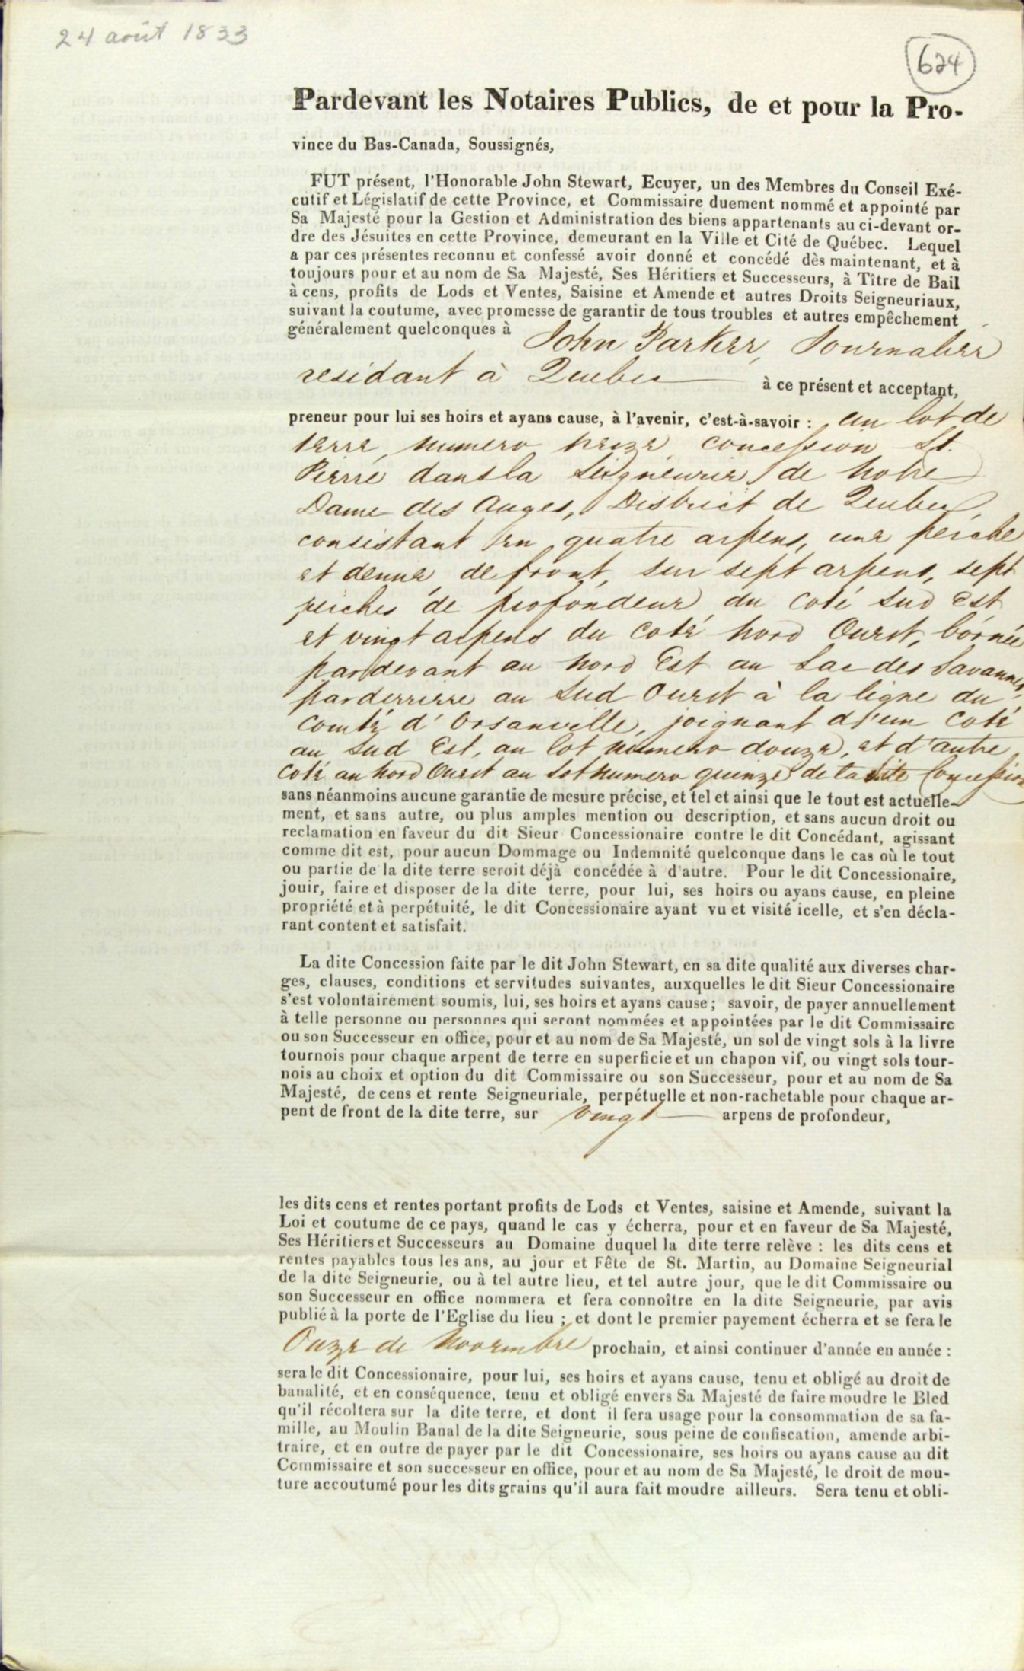 24 août 1833
624
Pardevant les Notaires Publics, de et pour la Pro-
vince du Bas-Canada, Soussignés,
FUT présent, l'Honorable John Stewart, Ecuyer, un des Membres du Conseil Exé-
cutif et Législatif de cette Province, et Commissaire duement nommé et appointé par
Sa Majesté pour la Gestion et Administration des biens appartenants au ci-devant or-
dre des Jésuites en cette Province, demeurant en la Ville et Cité de Québec. Lequel
a par ces présentes reconnu et confessé avoir donné et concédé dès maintenant, et à
toujours pour et au nom de Sa Majesté, Ses Héritiers et Successeurs, à Titre de Bail
à cens, profits de Lods et Ventes, Saisine et Amende et autres Droits Seigneuriaux,
suivant la coutume, avec promesse de garantir de tous troubles et autres empêchement
généralement quelconques à John Parker, Journalier
residant à Quebec à ce présent et acceptant,
preneur pour lui ses hoirs et ayans cause, à l'avenir, c'est-à-savoir : un lot de
terre, numero treize concession St.
Pierre dans la Seigneurie de Notre
Dame des Anges, District de Quebec,
consistant en quatre arpens, une perche
et demie de front, sur sept arpens, sept
perches de profondeur du coté Sud Est
et vingt arpens du coté Nord Ouest, bornée
pardevant au Nord Est au Lac des Savannes,
parderriere au Sud Ouest à la ligne du
Comté d'Orsainville, joignant d'un coté
au Sud Est, au lot numero douze, et d'autre
coté au Nord Ouest au lot numero quinze de la dite Concession
sans néanmoins aucune garantie de mesure précise, et tel et ainsi que le tout est actuelle-
ment, et sans autre, ou plus amples mention ou description, et sans aucun droit ou
reclamation en faveur du dit Sieur Concessionaire contre le dit Concédant, agissant
comme dit est, pour aucun Dommage ou Indemnité quelconque dans le cas où le tout
ou partie de la dite terre seroit déjà concédée à d'autre. Pour le dit Concessionaire,
jouir, faire et disposer de la dite terre, pour lui, ses hoirs ou ayans cause, en pleine
propriété et à perpétuité, le dit Concessionaire ayant vu et visité icelle, et s'en décla-
rant content et satisfait.
La dite Concession faite par le dit John Stewart, en sa dite qualité aux diverses char-
ges, clauses, conditions et servitudes suivantes, auxquelles le dit Sieur Concessionaire
s'est volontairement soumis, lui, ses hoirs et ayans cause; savoir, de payer annuellement
à telle personne ou personnes qui seront nommées et appointées par le dit Commissaire
ou son Successeur en office, pour et au nom de Sa Majesté, un sol de vingt sols à la livre
tournois pour chaque arpent de terre en superficie et un chapon vif, ou vingt sols tour-
nois au choix et option du dit Commissaire ou son Successeur, pour et au nom de Sa
Majesté, de cens et rente Seigneuriale, perpétuelle et non-rachetable pour chaque ar-
pent de front de la dite terre, sur vingt arpens de profondeur,
les dits cens et rentes portant profits de Lods et Ventes, saisine et Amende, suivant la
Loi et coutume de ce pays, quand le cas y écherra, pour et en faveur de Sa Majesté,
Ses Héritiers et Successeurs au Domaine duquel la dite terre relève : les dits cens et
rentes payables tous les ans, au jour et Fête de St. Martin, au Domaine Seigneurial
de la dite Seigneurie, ou à tel autre lieu, et tel autre jour, que le dit Commissaire ou
son Successeur en office nommera et fera connoître en la dite Seigneurie, par avis
publié à la porte de l'Eglise du lieu ; et dont le premier payement écherra et se fera le
Onze de Novembre prochain, et ainsi continuer d'année en année :
sera le dit Concessionaire, pour lui, ses hoirs et ayans cause, tenu et obligé au droit de
banalité, et en conséquence, tenu et obligé envers Sa Majesté de faire moudre le Bled
qu'il récoltera sur la dite terre, et dont il fera usage pour la consommation de sa fa-
mille, au Moulin Banal de la dite Seigneurie, sous peine de confiscation, amende arbi-
traire, et en outre de payer par le dit Concessionaire, ses hoirs ou ayans cause au dit
Commissaire et son successeur en office, pour et au nom de Sa Majesté, le droit de mou-
ture accoutumé pour les dits grains qu'il aura fait moudre ailleurs. Sera tenu et obli-